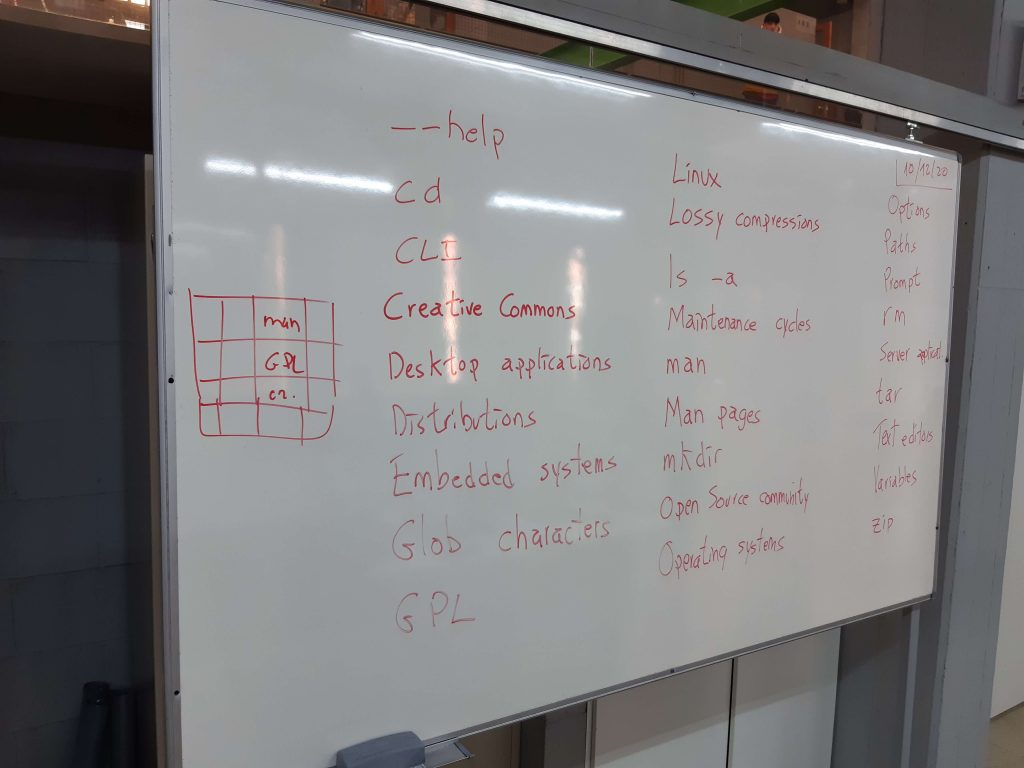 man
GPL
--help
cd
CLI
Creative Commons
Desktop applications
Distributions
Embedded systems
Glob characters
GPL
Linux
Lossy compressions
ls -a
Maintenance cycles
man
Man pages
mkdir
Open Source community
Operating systems
10/12/20
Options
Paths
Prompt
rm
Server applicat.
tar
Text editors
Variables
zip